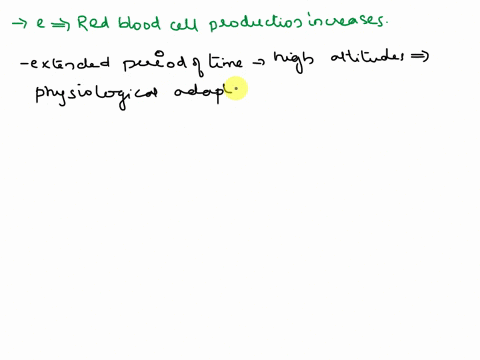 → e ⇒ Red blood cell production increases.
- extended period of time → high altitudes ⇒
physiological adapt